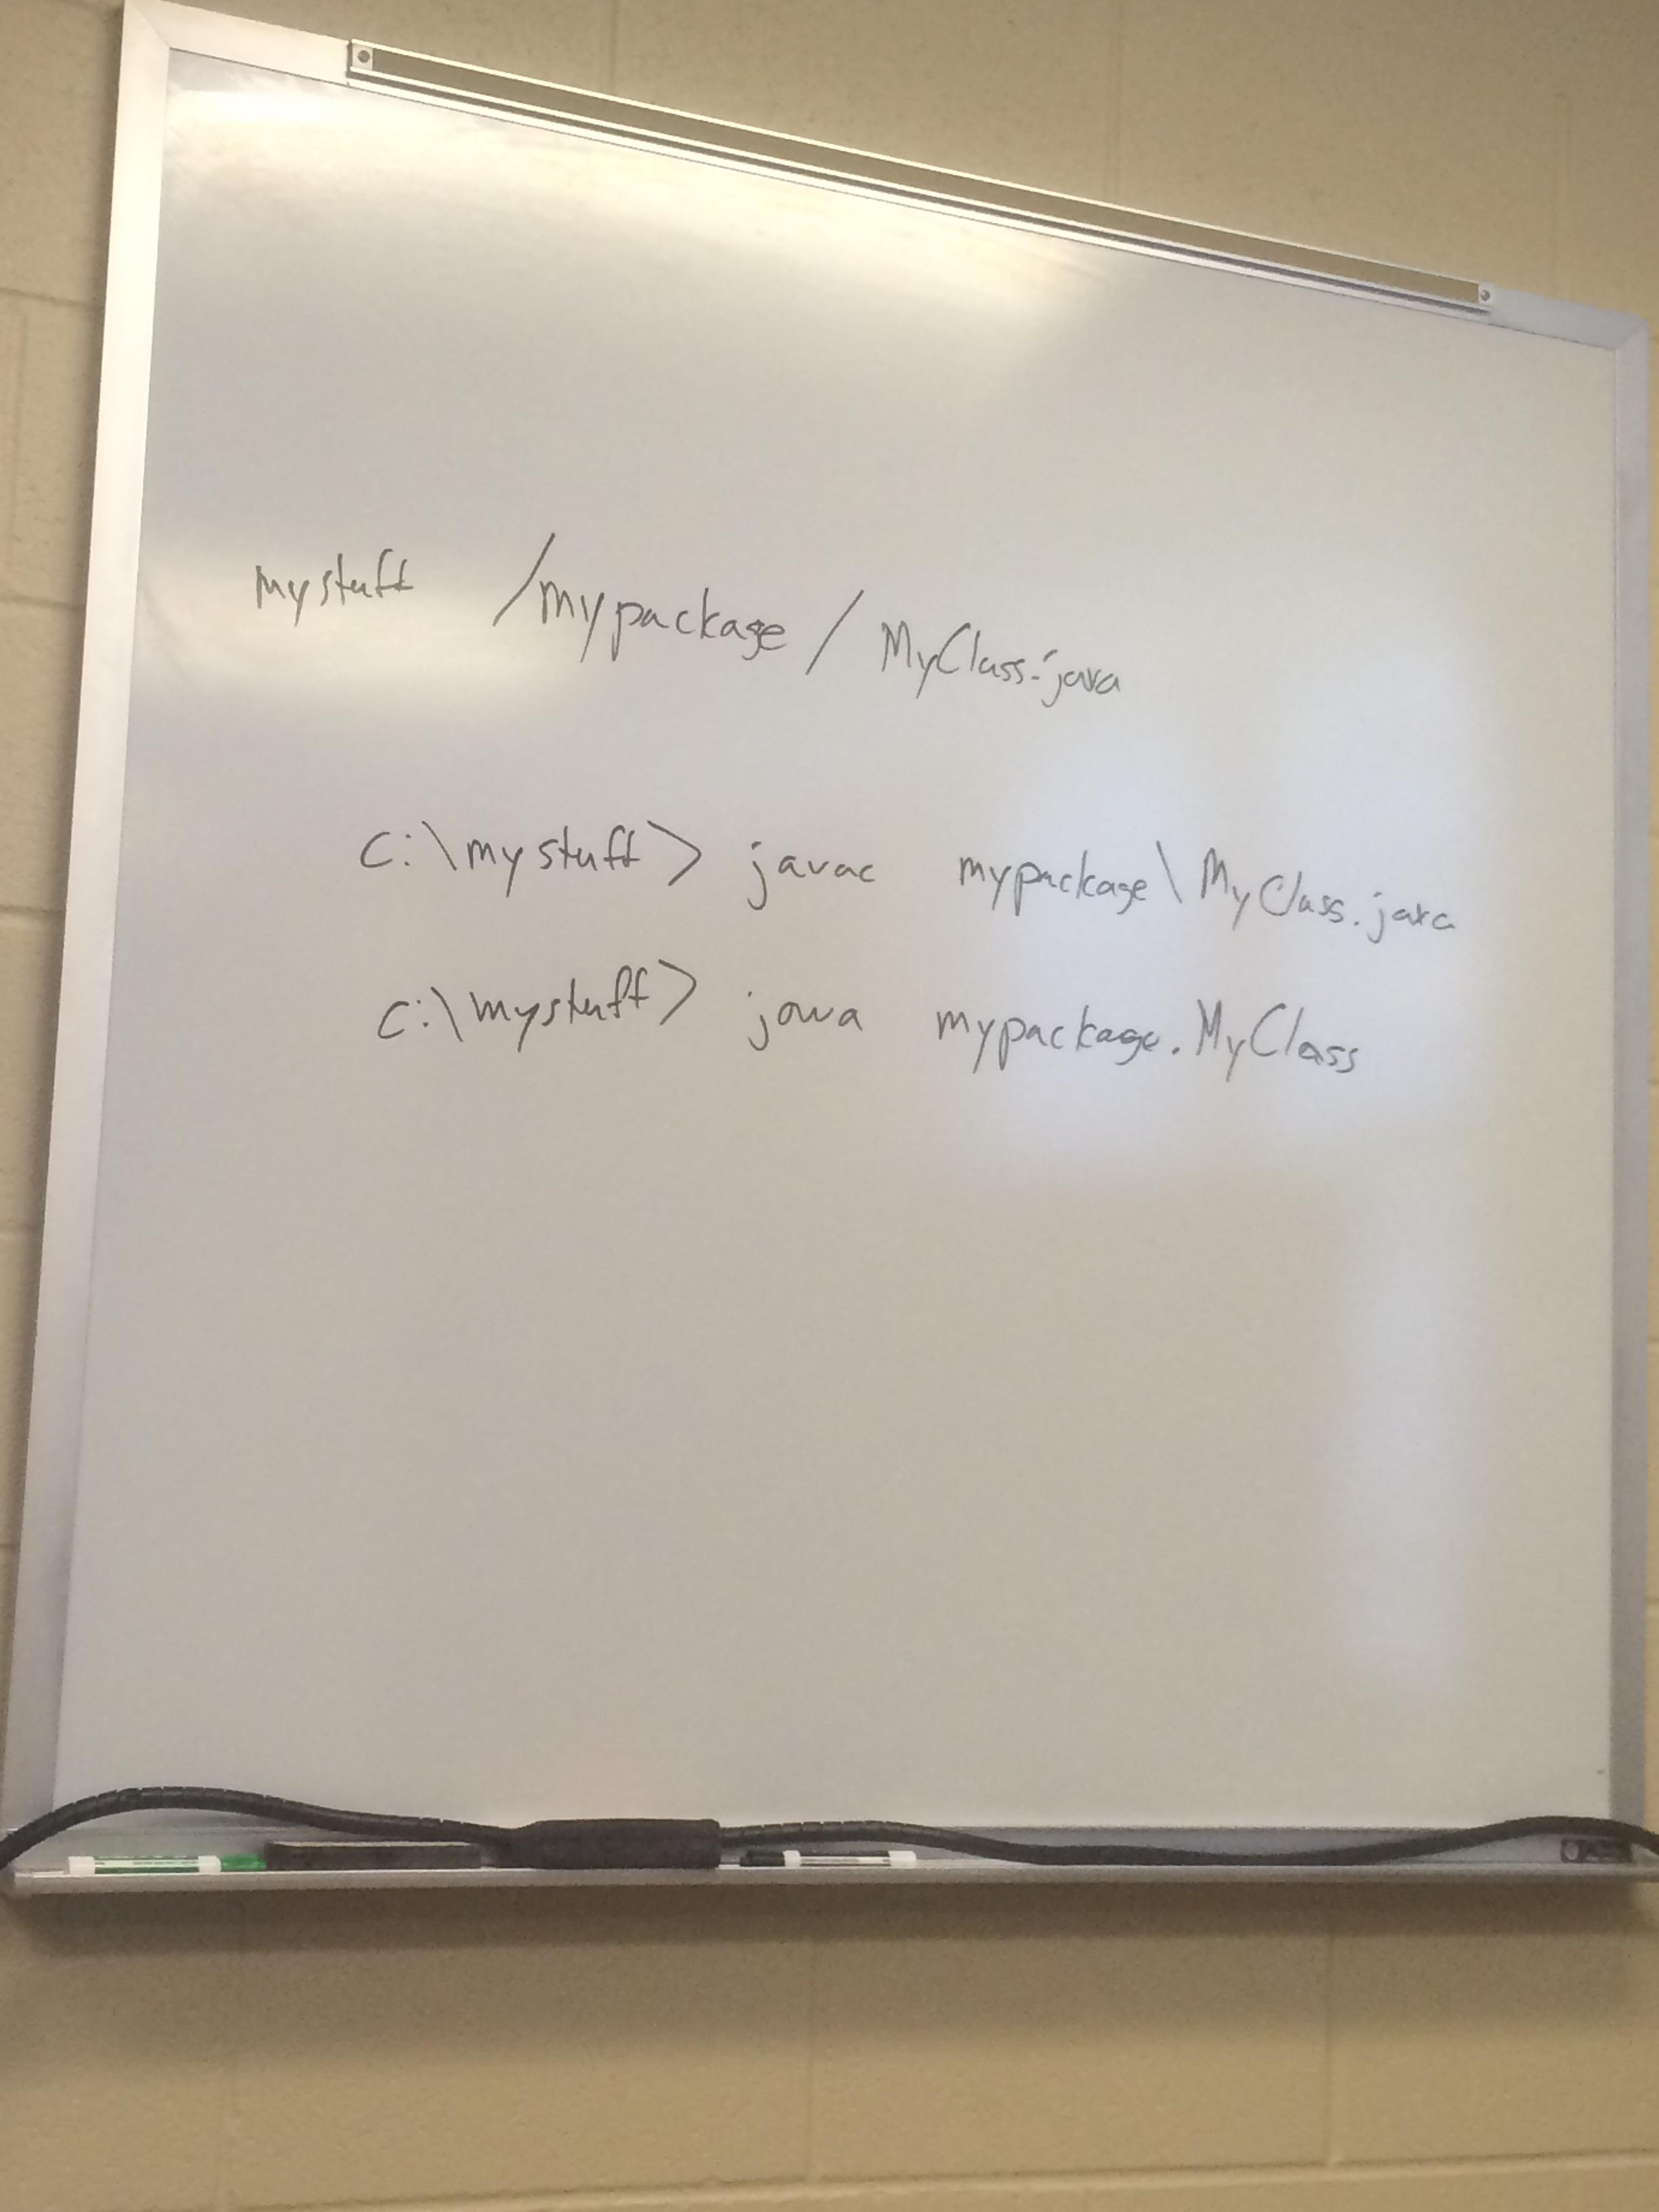 mystuff /mypackage / MyClass.java
C:\mystuff> javac mypackage\MyClass.java
C:\mystuff> java mypackage.MyClass